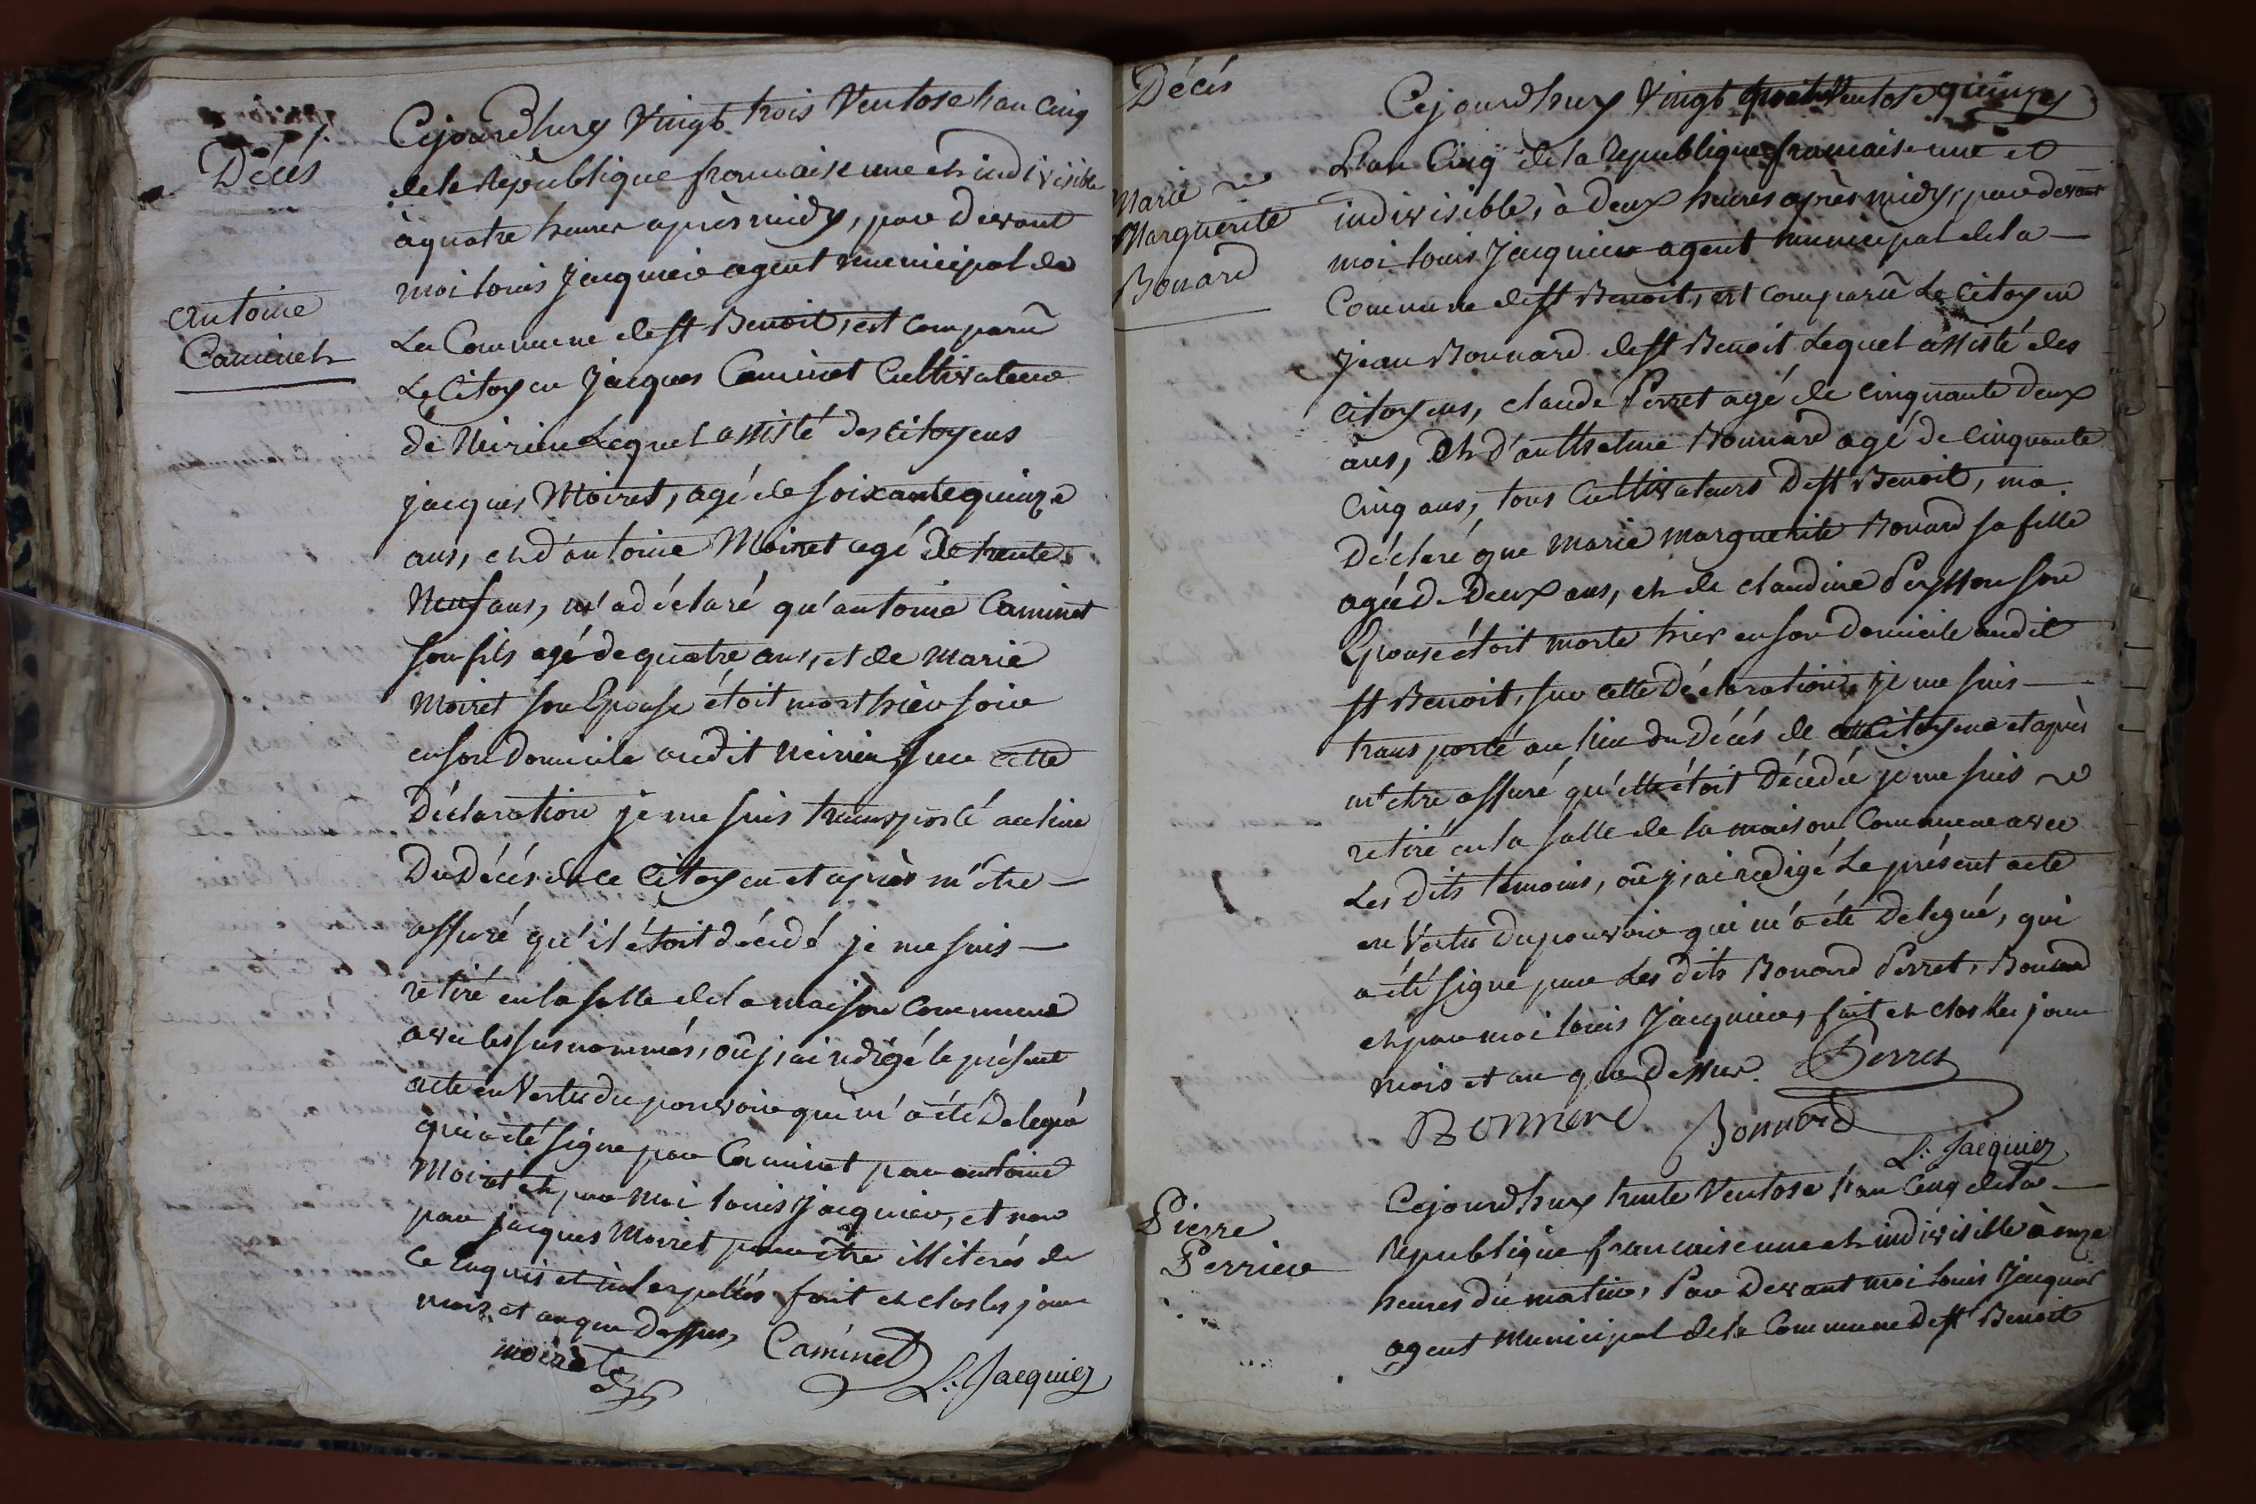 Décès
Antoine
Caminet
Cejourdhuy Vingt trois Ventose l'an Cinq
de la République francaise une et indivisible
à quatre heures après midy, par devant
moi louis Jacquier agent municipal de
La Commune de st Benoit, est comparû
Le Citoyen Jacques Caminet Cultivateur
de Neirieu Lequel assisté des citoyens
jacques Moiret, agé de soixante quinze
ans, et d'antoine Moiret agé de trente
Neuf ans, m'a déclaré qu'antoine Caminet
son fils agé de quatre ans, et de marie
Moiret son Epouse étoit mort hier soir
en son domicile audit neirieu, sur cette
Déclaration je me suis transporté au lieu
Du décés de ce Citoyen et après m'être
assuré qu'il étoit décédé je me suis
retiré en la salle de la maison commune
avec les susnommés, où j,ai redigé le présent
acte en Vertu du pouvoir qui m'a été Delegué
qui a été signé par Caminet par antoine
Moiret et par moi louis Jacquier, et non
par jacques Moiret pour être illiterés de
ce Enquis et interpellés fait et clos les jour
mois et an que Dessus,
moiret
Caminet
L: Jacquier
Décés
Marie
Marguerite
Bonard
Cejourdhuy Vingt Ventose quinze
L'an Cinq de la République francaise une et
indivisible, à Deux heures après midy, par devant
moi louis Jacquier agent municipal de la
Commune de st Benoit, est comparû Le Citoyen
Jean Bonnard de st Benoit Lequel assisté des
citoyens, claude Perret agé de cinquante deux
ans, et d'anthelme Bonnard agé de cinquante
Cinq ans, tous Cultivateurs De st Benoit, ma
Déclaré que marie marguerite Bonard sa fille
agée de Deux ans, et de claudine Peysson son
Epouse étoit morte hier en son domicile audit
st Benoit, sur cette Déclaration je me suis
transporté au lieu du Décés de Citoyene et après
m'etre assuré qu'elle étoit Décedée je me suis
retiré en la salle de la maison Commune avec
Les dits temoins, où j,ai redigé Le présent acte
en Vertu du pouvoir qui m'a été Delegué, qui
a été signé par Les dits Bonard Perret, Bonard
et par moi louis Jacquier, fait et clos les jour
mois et an que Dessus.
Perret
Bonnard
Bonnard
L: Jacquier
Pierre
Perrier
Cejourdhuy trente Ventose l'an Cinq de la
Republique francaise une et indivisible à onze
heures du matin, Par Devant moi louis Jacquier
agent Municipal de la Commune De st Benoit